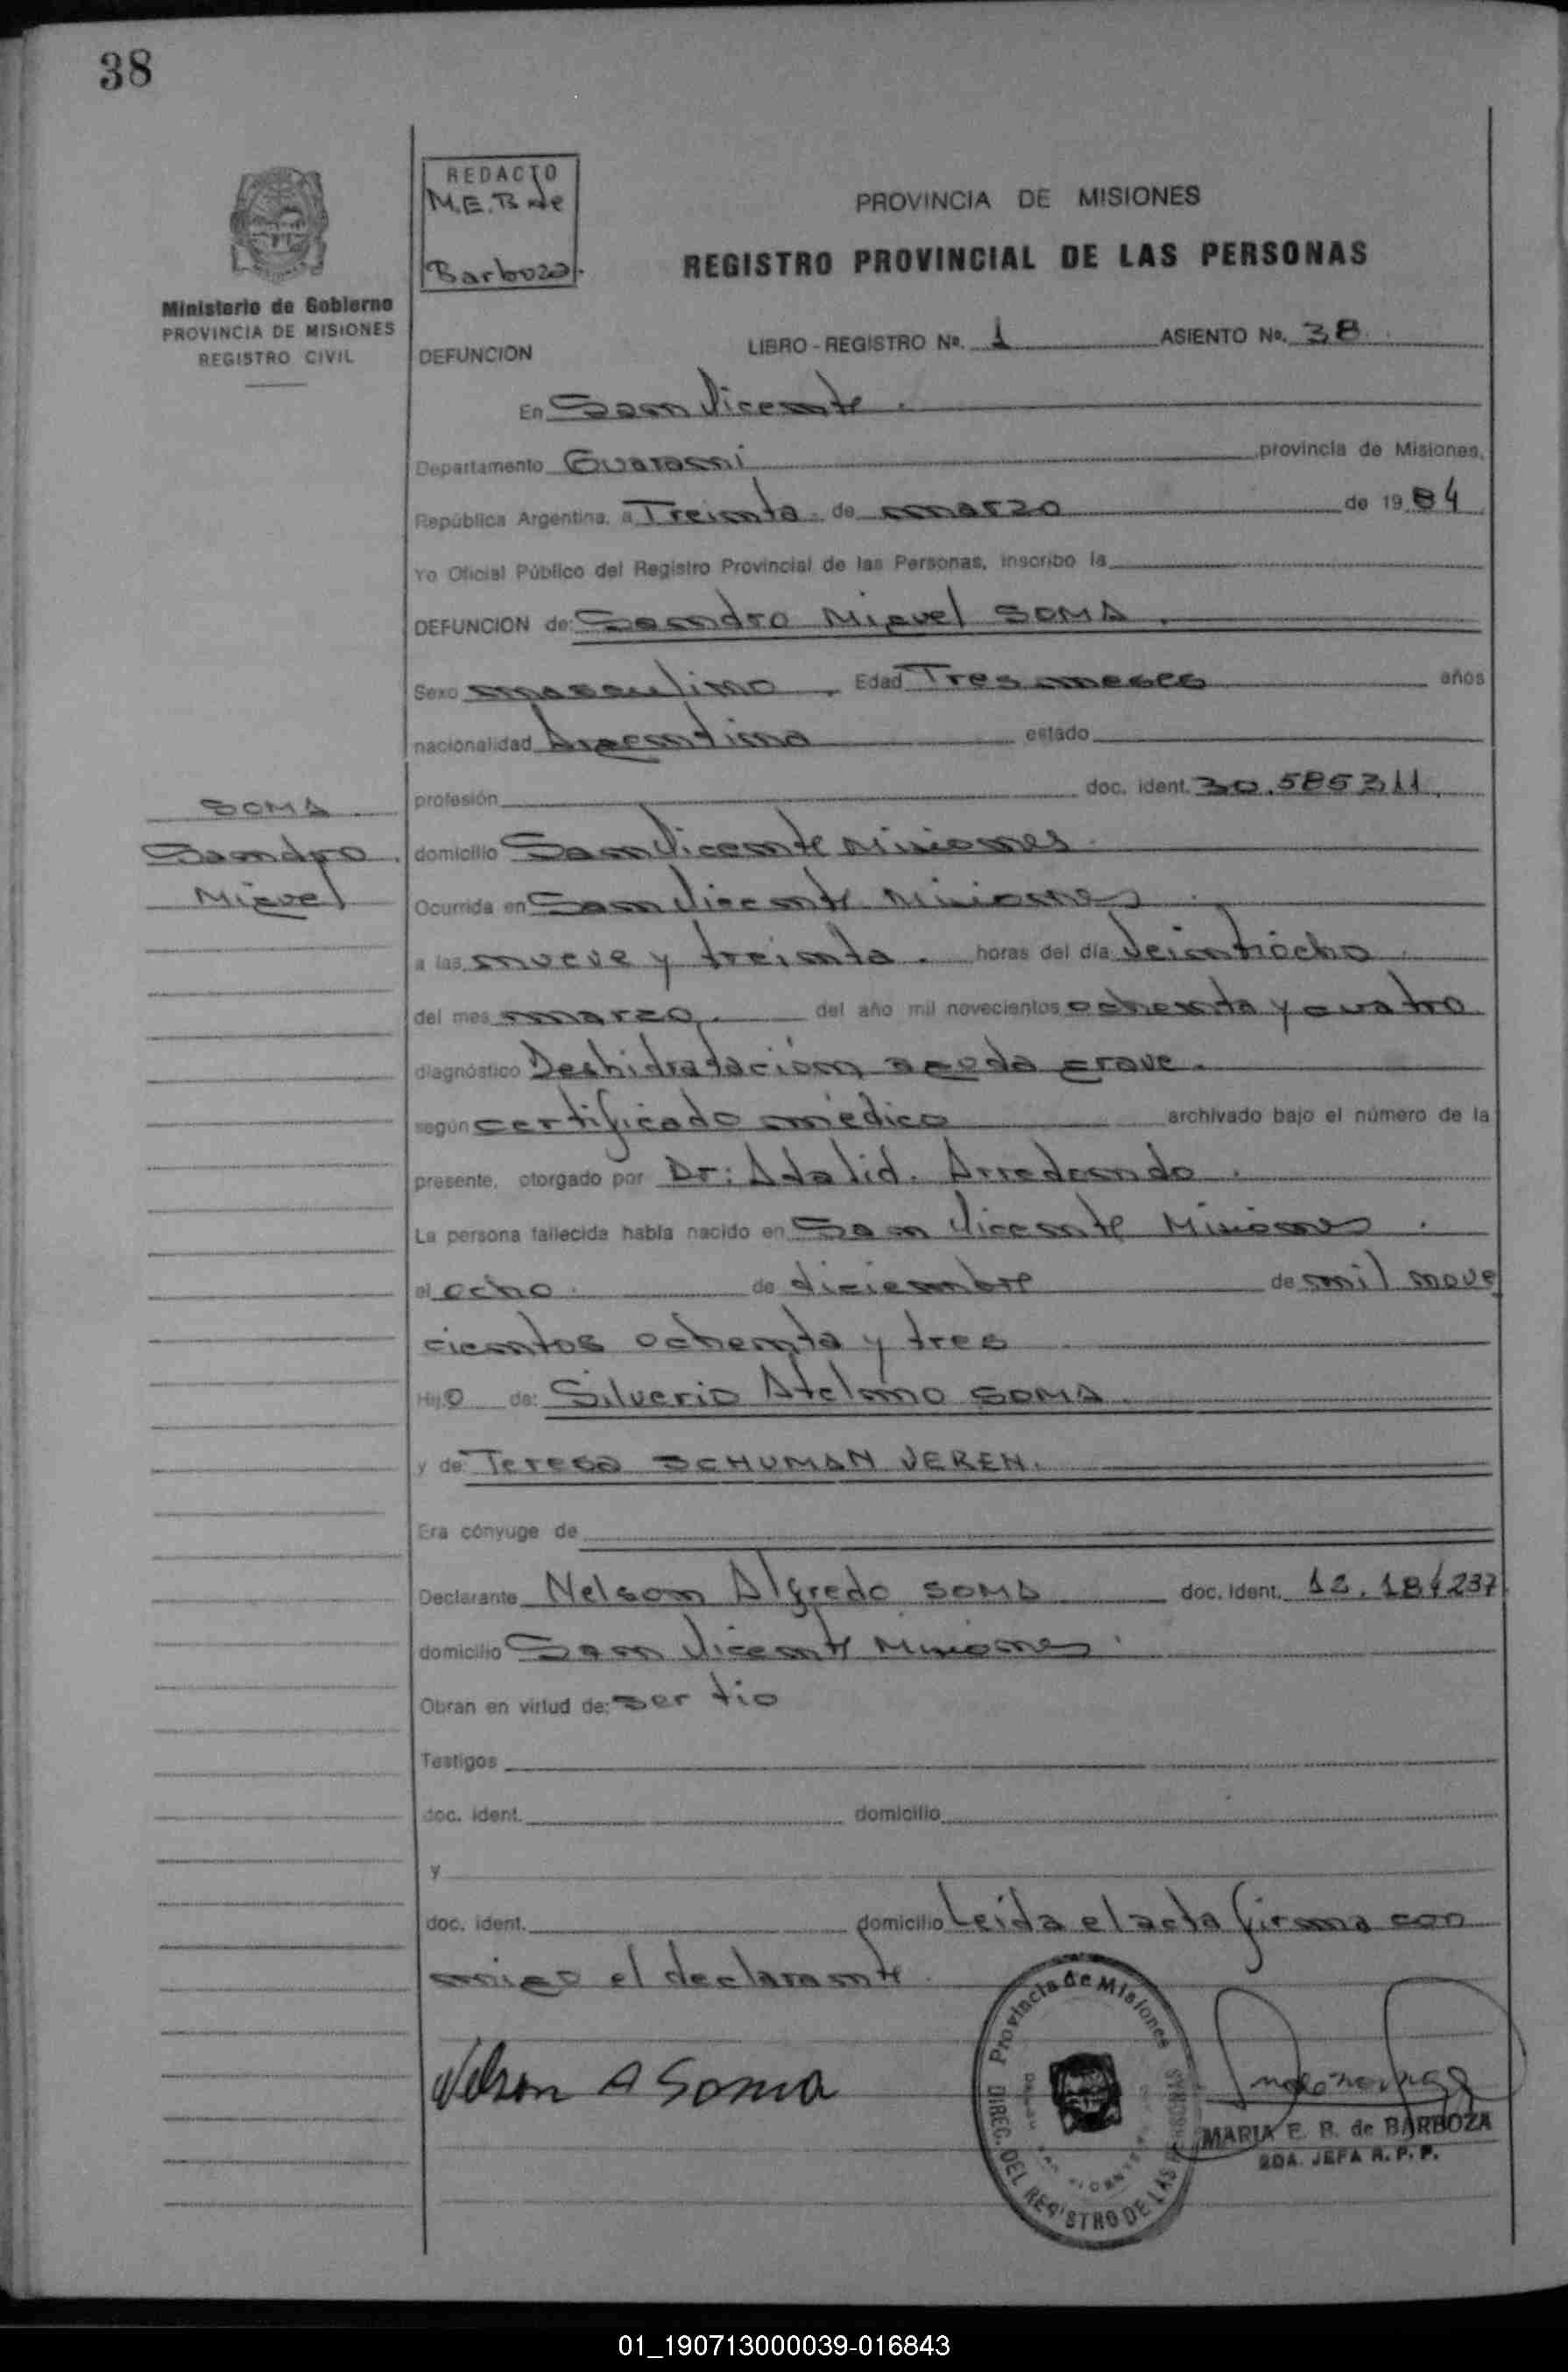 38
REDACTO
M.E.B de
Barboza.
Ministerio de Gobierno
PROVINCIA DE MISIONES
REGISTRO CIVIL
PROVINCIA DE MISIONES
REGISTRO PROVINCIAL DE LAS PERSONAS
DEFUNCION LIBRO - REGISTRO Nº. 1 ASIENTO Nº. 38
En San Vicente.
Departamento Guarani provincia de Misiones,
República Argentina, a Treinta de marzo de 1984
Yo Oficial Público del Registro Provincial de las Personas, inscribo la
DEFUNCION de: Sandro Miguel SOMA.
Sexo masculino. Edad Tres meses años
nacionalidad Argentina estado
profesión doc. ident. 30.585311.
SOMA
Sandro
Miguel
domicilio San Vicente Misiones
Ocurrida en San Vicente Misiones
a las nueve y treinta. horas del día veintiocho
del mes marzo. del año mil novecientos ochenta y cuatro
diagnóstico Deshidratación aguda grave.
según certificado médico archivado bajo el número de la
presente, otorgado por Dr: Adalid. Arredondo.
La persona fallecida había nacido en San Vicente Misiones.
el ocho. de diciembre de mil nove
cientos ochenta y tres
Hijo de: Silverio SOMA
y de Teresa SCHUMAN VEREN.
Era cónyuge de
Declarante Nelson Alfredo SOMA doc. ident.
domicilio San Vicente Misiones.
Obran en virtud de: ser tio
Testigos
doc. ident. domicilio
y
doc. ident. domicilio Leida el acta firma con
migo el declarante.
Nelson A Soma
Provincia de Misiones
DIREC. DEL REGISTRO DE LAS PERSONAS
MARIA E. B. de BARBOZA
2DA. JEFA R. P. P.
01_190713000039-016843